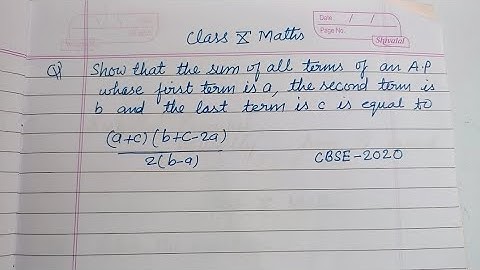 Class X Maths
Date / /
Page No.
Shivalal
Q1 Show that the sum of all terms of an A.P
whose first term is a, the second term is
b and the last term is c is equal to
(a+c) (b+c-2a)
2(b-a)
CBSE-2020